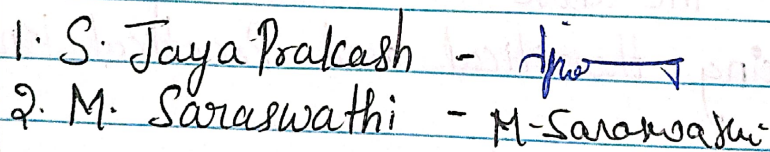 1. S. Jaya Prakash -
2. M. Saraswathi - M-Saraswathi